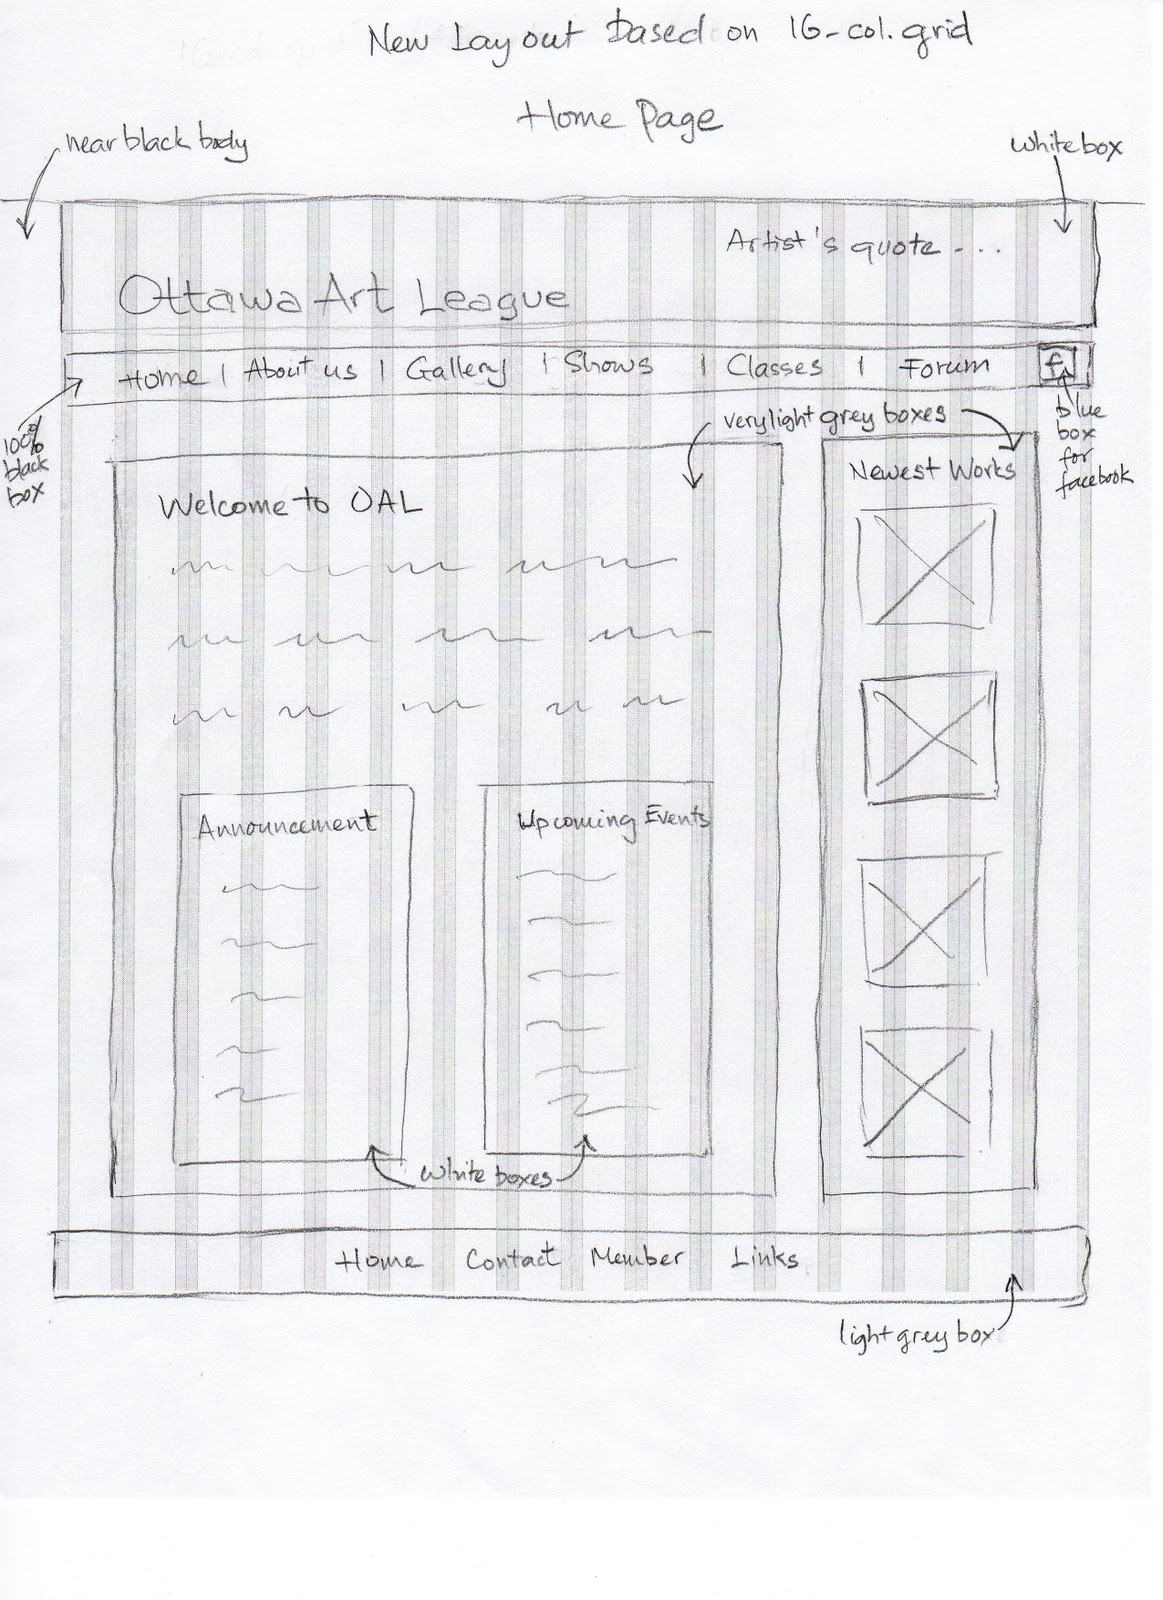 New Layout based on 16-col. grid
Home Page
near black body
white box
Artist's quote - - - -
Ottawa Art League
Home | About us | Gallery | Shows | Classes | Forum f
100%
black
box
blue
box
for
facebook
very light grey boxes
Newest Works
Welcome to OAL
Announcement
Upcoming Events
White boxes
Home Contact Member Links
light grey box